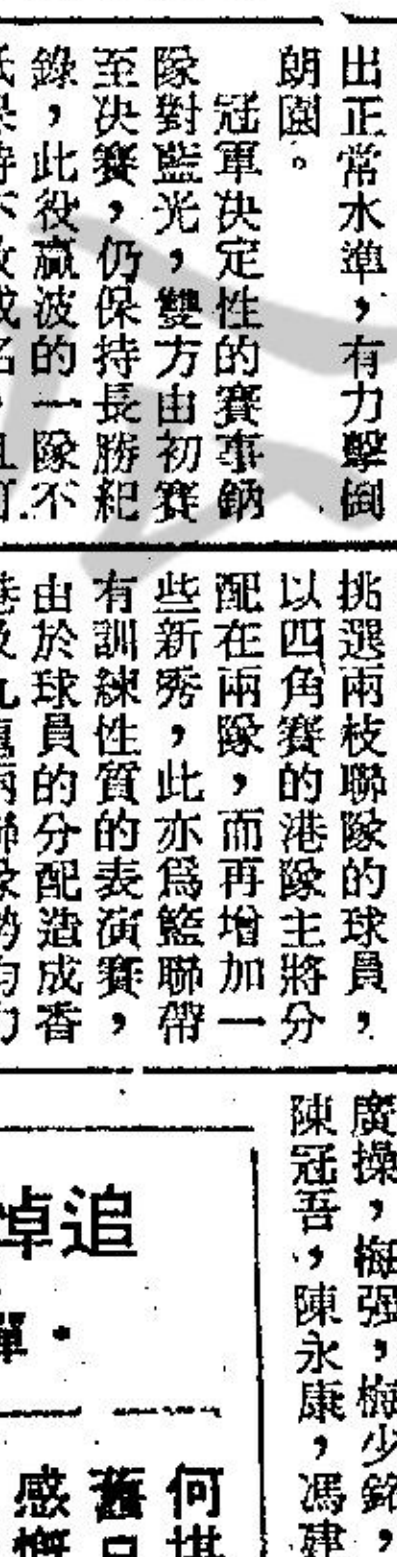 出正常水準，有力擊倒
朗園。
冠軍決定性的賽事鈉
隊對藍光，雙方由初賽
至決賽，仍保持長勝紀
錄，此役贏波的一隊不
挑選兩枝聯隊的球員，
以四角賽的港隊主將分
配在兩隊，而再增加一
些新秀，此亦爲籃聯帶
有訓練性質的表演賽，
由於球員的分配造成香
廣操，梅强，梅少銘，
陳冠吾，陳永康，馮建
追悼
何堪
舊
感慨